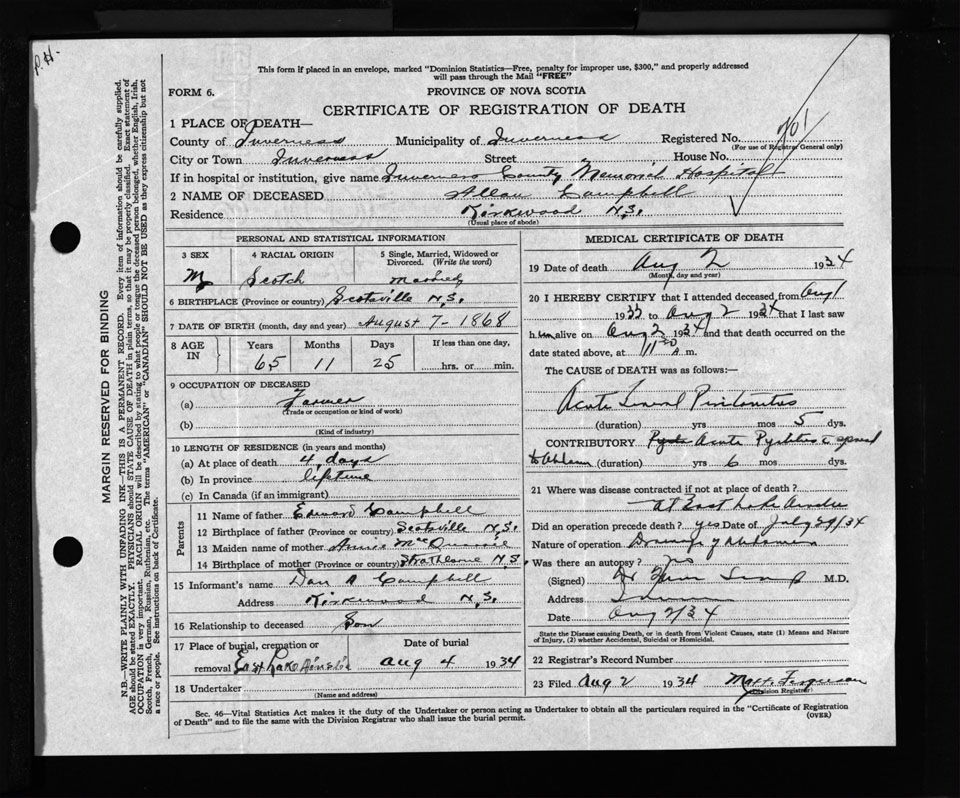 P.H.
This form if placed in an envelope, marked "Dominion Statistics—Free, penalty for improper use, $300," and properly addressed
will pass through the Mail "FREE"
FORM 6.
PROVINCE OF NOVA SCOTIA
CERTIFICATE OF REGISTRATION OF DEATH
1 PLACE OF DEATH—
County of Inverness Municipality of Inverness Registered No. 701
(For use of Registrar General only)
City or Town Inverness Street House No.
If in hospital or institution, give name Inverness County Memorial Hospital
2 NAME OF DECEASED Allan Campbell
Residence Kirkwood N.S.
(Usual place of abode)
PERSONAL AND STATISTICAL INFORMATION
3 SEX 4 RACIAL ORIGIN 5 Single, Married, Widowed or
Divorced. (Write the word)
M Scotch Married
6 BIRTHPLACE (Province or country) Scotsville N.S.
7 DATE OF BIRTH (month, day and year) August 7 - 1868
8 AGE IN Years Months Days If less than one day,
65 11 25 hrs. or min.
9 OCCUPATION OF DECEASED
(a) Farmer
(Trade or occupation or kind of work)
(b)
(Kind of industry)
10 LENGTH OF RESIDENCE (in years and months)
(a) At place of death 4 days
(b) In province lifetime
(c) In Canada (if an immigrant)
Parents
11 Name of father Edward Campbell
12 Birthplace of father (Province or country) Scotsville N.S.
13 Maiden name of mother Annie
14 Birthplace of mother (Province or country) Strathlorne N.S.
15 Informant's name Dan A Campbell
Address Kirkwood N.S.
16 Relationship to deceased Son
17 Place of burial, cremation or Date of burial
removal East Lake Ainslie Aug 4 1934
18 Undertaker
(Name and address)
MEDICAL CERTIFICATE OF DEATH
19 Date of death Aug 2 1934
(Month, day and year)
20 I HEREBY CERTIFY that I attended deceased from Aug 1
1933 to Aug 2 1934 that I last saw
h im alive on Aug 2 1934 and that death occurred on the
date stated above, at 11 20 A m.
The CAUSE of DEATH was as follows:—
Acute Peritonitis
(duration) yrs mos 5 dys.
CONTRIBUTORY Acute Pyelitis c spread
to (duration) yrs 6 mos dys.
21 Where was disease contracted if not at place of death?
at East Lake Ainslie
Did an operation precede death? yes Date of July 29/34
Nature of operation Drainage of Abdomen
Was there an autopsy? no
(Signed) Dr M.D.
Address
Date Aug 2/34
State the Disease causing Death, or in death from Violent Causes, state (1) Means and Nature
of Injury, (2) whether Accidental, Suicidal or Homicidal.
22 Registrar's Record Number
23 Filed Aug 2 1934 Matt. Ferguson
(Division Registrar)
Sec. 46—Vital Statistics Act makes it the duty of the Undertaker or person acting as Undertaker to obtain all the particulars required in the "Certificate of Registration
of Death" and to file the same with the Division Registrar who shall issue the burial permit.
(OVER)
MARGIN RESERVED FOR BINDING
N.B—WRITE PLAINLY WITH UNFADING INK—THIS IS A PERMANENT RECORD. Every item of information should be carefully supplied.
AGE should be stated EXACTLY. PHYSICIANS should STATE CAUSE OF DEATH in plain terms, so that it may be properly classified. Exact statement of
OCCUPATION is very important. RACIAL ORIGIN will be described by stating to what people or tongue the deceased person belonged, whether English, Irish,
Scotch, French, German, Russian, Ruthenian, etc. The terms "AMERICAN" or "CANADIAN" SHOULD NOT BE USED as they express citizenship but not
a race or people. See instructions on back of Certificate.